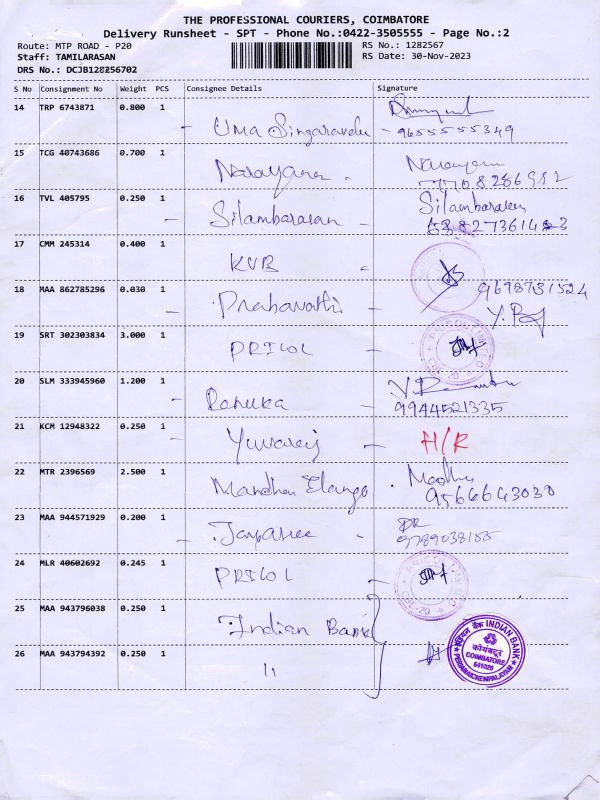 THE PROFESSIONAL COURIERS, COIMBATORE
Delivery Runsheet - SPT - Phone No.:0422-3505555 - Page No.:2
Route: MTP ROAD - P20
RS No.: 1282567
Staff: TAMILARASAN
RS Date: 30-Nov-2023
DRS No.: DCJB128256702
S No Consignment No Weight PCS Consignee Details Signature
14 TRP 6743871 0.800 1
- Uma Singaravelu - 9655555349
15 TCG 40743686 0.700 1
Narayanan
16 TVL 405795 0.250 1 Silambarasan
- Silambarasan -
17 CMM 245314 0.400 1
KVB
18 MAA 862785296 0.030 1 9698731524
- Prabavathi -
19 SRT 302303834 3.000 1
PRICOL -
20 SLM 333945960 1.200 1
- Renuka - 9944521335
21 KCM 12948322 0.250 1
- Yuvaraj - H/R
22 MTR 2396569 2.500 1 Madhu
Elango 9566643030
23 MAA 944571929 0.200 1
- Jayasree 9789038155
24 MLR 40602692 0.245 1
PRICOL
25 MAA 943796038 0.250 1
Indian Bank
26 MAA 943794392 0.250 1
11
INDIAN BANK
कोयंबटूर
COIMBATORE
641020
PERIANAICKENPALAYAM